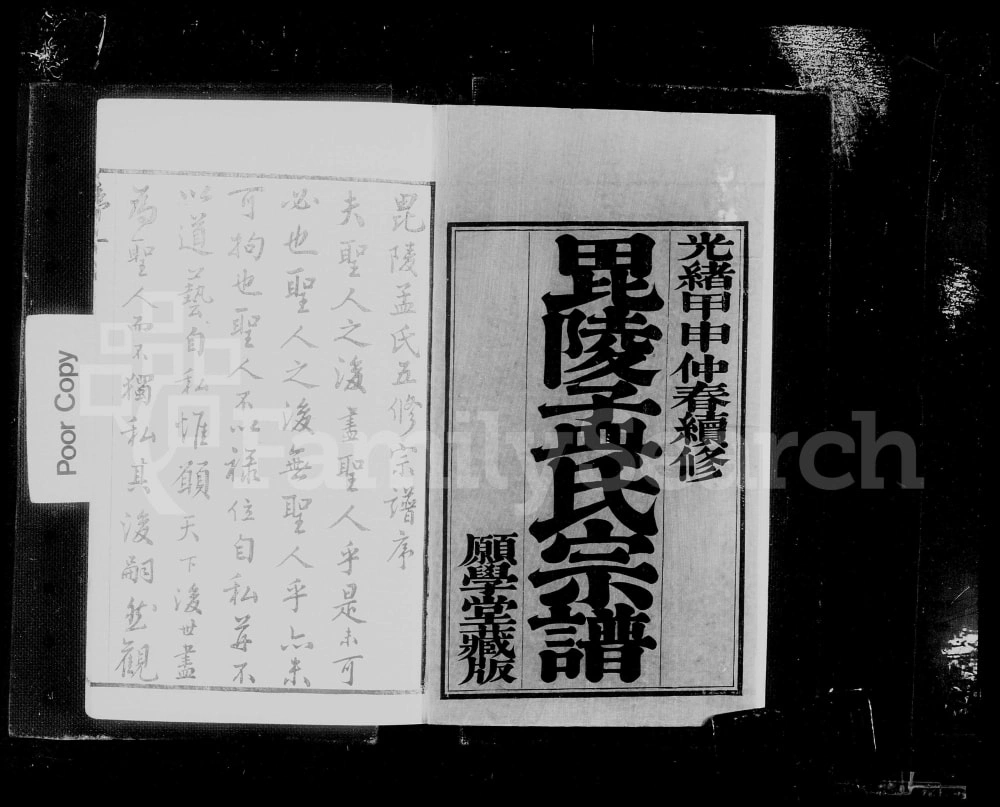 光緒甲申仲春續修
毘陵孟氏宗譜
願學堂藏版
毘陵孟氏五修宗譜序
夫聖人之後盡聖人乎是未可
必也聖人之後無聖人乎亦未
可拘也聖人不以祿位自私並不
以道藝自私惟願天下後世盡
為聖人而不獨私其後嗣然觀
Poor Copy
FamilySearch